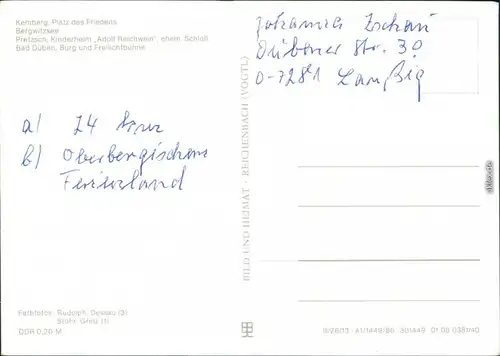 Kemberg, Platz des Friedens
Bergwitzsee
Pretzsch, Kinderheim „Adolf Reichwein", ehem. Schloß
Bad Düben, Burg und Freilichtbühne
Johanna
Dübener Str. 30
O-7281 Laußig
a) 24
b) Oberbergischen
Ferienland
BILD UND HEIMAT · REICHENBACH (VOGTL)
Farbfotos: Rudolph, Dessau (3)
Stohr, Greiz (1)
DDR 0,20 M
A1/1449/86 301449 01 08 0381/40